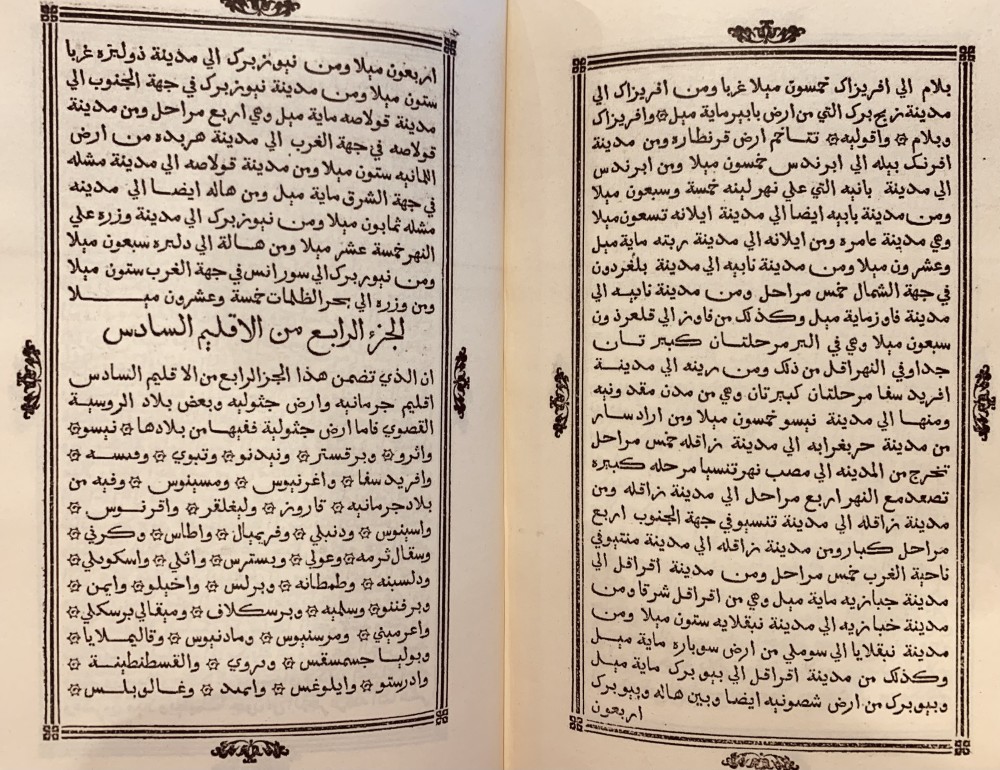 بلام الي افريزاك خمسون ميلا غربا ومن افريزاك الي
مدينة زيج برك التي من ارض بابير ماية ميل وافريزاك
وبلام واقوليه تتاخم ارض قرنطاره ومن مدينة
افرنك بيله الي ابرندس خمسون ميلا ومن ابرندس
الي مدينة بانيه التي علي نهر لينه خمسة وسبعون ميلا
ومن مدينة بابيه ايضا الي مدينة ايلانه تسعون ميلا
وهي مدينة عامره ومن ايلانه الي مدينة ربنه ماية ميل
وعشرون ميلا ومن مدينة نابيه الي مدينة بلغردون
في جهة الشمال خمس مراحل ومن مدينة نابيه الي
مدينة فاوز ماية ميل وكذلك من فاوز الي قلعرذون
سبعون ميلا وهي في البر مرحلتان كبيرتان
جدا وفي النهر اقل من ذلك ومن رينه الي مدينة
افريد سفا مرحلتان كبيرتان وهي من مدن مقدونيه
ومنها الي مدينة نيسو خمسون ميلا ومن اراد سار
من مدينة حربغرابه الي مدينة زاقله خمس مراحل
تخرج من المدينه الي مصب نهر تنسيا مرحله كبيره
تصعد مع النهر اربع مراحل الي مدينة زاقله ومن
مدينة زاقله الي مدينة تنسبو في جهة الجنوب اربع
مراحل كبار ومن مدينة زاقله الي مدينة منتيو في
ناحية الغرب خمس مراحل ومن مدينة اقراقل الي
مدينة جبازيه ماية ميل وهي من اقراقل شرقا ومن
مدينة خبازيه الي مدينة نبقلايه ستون ميلا ومن
مدينة نبقلايا الي سوملي من ارض سوباره ماية ميل
وكذلك من مدينة اقراقل الي بيو برك ماية ميل
وبيو برك من ارض شصونيه ايضا وبين هاله وبيوبرك
اربعون
اربعون ميلا ومن نيوزبرك الي مدينة ذولبره غربا
ستون ميلا ومن مدينة نيوزبرك في جهة الجنوب الي
مدينة قولاصه ماية ميل وهي اربع مراحل ومن مدينة
قولاصه في جهة الغرب الي مدينة هربده من ارض
اللمانيه ستون ميلا ومن مدينة قولاصه الي مدينة مشله
في جهة الشرق ماية ميل ومن هاله ايضا الي مدينه
مشله ثمانون ميلا ومن نيوزبرك الي مدينة وزره علي
النهر خمسة عشر ميلا ومن هالة الي دلبره سبعون ميلا
ومن نيوربرك الي سورانس في جهة الغرب ستون ميلا
ومن وزره الي بحر الظلمات خمسة وعشرون ميلا
الجزء الرابع من الاقليم السادس
ان الذي تضمن هذا الجز الرابع من الاقليم السادس
اقليم جرمانيه وارض جثوليه وبعض بلاد الروسية
القصوي فاما ارض جثولية ففيها من بلادها نيسو
واثرو وبرقستر ونيدنو وتبوي وفسسه
وافريد سفا واغرنبوس ومسينوس وفيه من
بلاد جرمانيه قاروز ولبغلقر واقرنوس
واسينوس ودنبلي وفريميال واطاس وكرني
وسقال ثرمه وعولي وبسترس واثلي واسكوبلي
ودلسينه وطمطانه وبرلس واخيلو وايمن
وبرفنتو وسلميه وبرسكلاف وميقالي برسكلي
واغرميني ومرسنبوس ومادنبوس وقاليملايا
وبوليا جسمسقس وبروي والقسطنطينة
وادرستو وايلوغس وايميد وغالوبلس